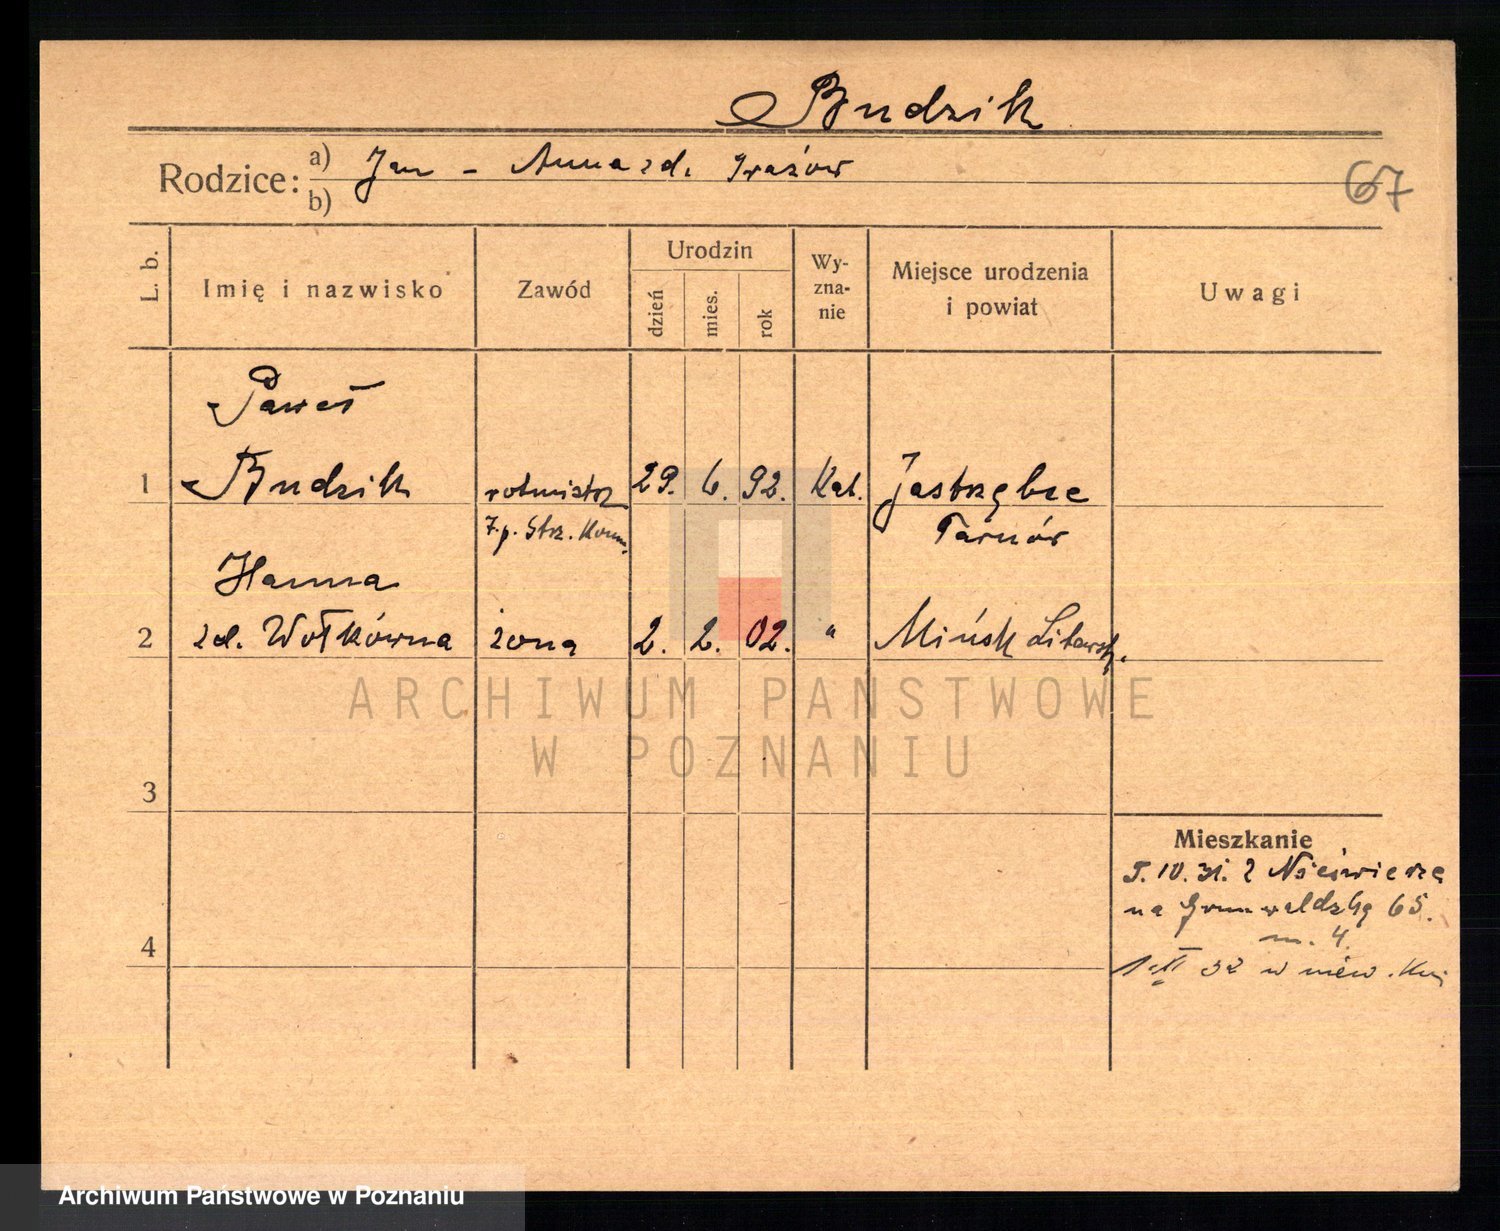 Budzik
Rodzice: a) Jan - Anna zd. Grażów
b)
67
L. b.
Imię i nazwisko
Zawód
Urodzin
dzień
mies.
rok
Wy-
zna-
nie
Miejsce urodzenia
i powiat
Uwagi
Paweł
1 Budzik rotmistrz 29. 6. 92. Kat. Jastrzębie
7.p. Strz. Konn. Tarnów
Hanna
2 zd. Wołkówna żona 2. 2. 02. " Mińsk Litewsk.
ARCHIWUM PAŃSTWOWE
W POZNANIU
3
Mieszkanie
5.10.31. z Nieświerza
na Grunwaldzką 65.
m. 4.
4
32 w
Archiwum Państwowe w Poznaniu